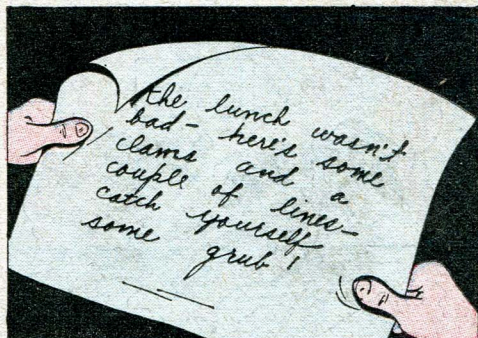 the lunch wasn't
bad- here's some
clams and a
couple of lines-
catch yourself
some grub!